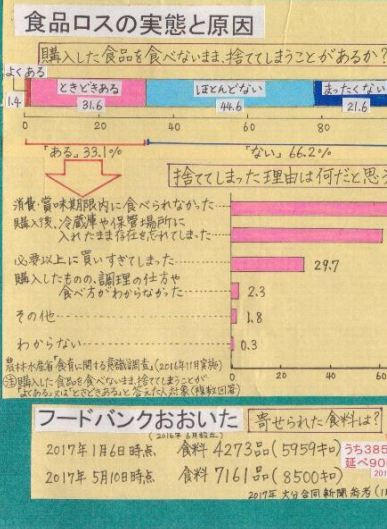 食品ロスの実態と原因
購入した食品を食べないまま、捨ててしまうことがあるか?
よくある
ときどきある
ほとんどない
まったくない
1.4
31.6
44.6
21.6
0 20 40 60 80
「ある」33.1%
「ない」66.2%
捨ててしまった理由は何だと思
消費・賞味期限内に食べられなかった
購入後、冷蔵庫や保管場所に
入れたまま存在を忘れてしまった
必要以上に買いすぎてしまった
29.7
購入したものの、調理の仕方や
食べ方がわからなかった
2.3
その他
1.8
わからない
0.3
0 20 40 60
農林水産省「食育に関する意識調査」(2016年11月実施)
注 購入した食品を食べないまま、捨ててしまうことが
「よくある」又は「ときどきある」と答えた人対象(複数回答)
フードバンクおおいた
寄せられた食料は?
2017年1月6日時点 食料 4273品(5959キロ)
うち385
延べ90
2017年5月10日時点 食料 7161品(8500キロ)
201
2017年 大分合同新聞発行(11